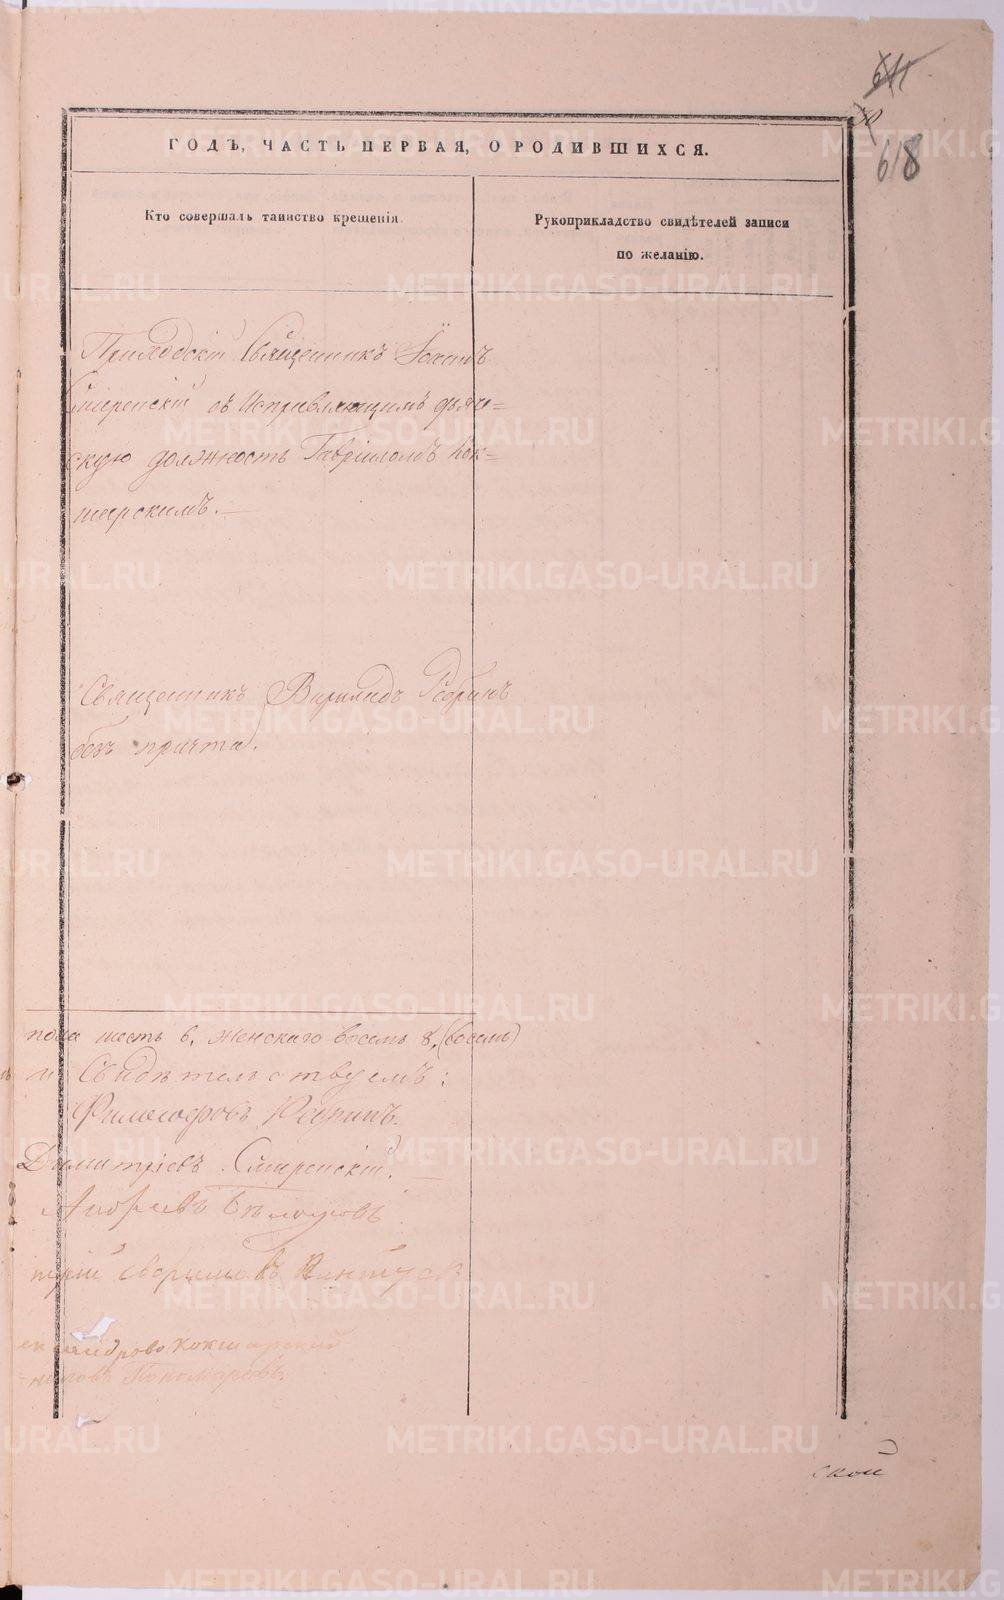 611
50
618
ГОДЪ, ЧАСТЬ ПЕРВАЯ, О РОДИВШИХСЯ.
Кто совершалъ таинство крещенія.
Рукоприкладство свидѣтелей записи
по желанію.
Приходскій Священникъ Іоаннъ
Смиренскій съ Исправляющимъ дьяче=
скую должность Гавріиломъ Кок=
шарскимъ.—
Священникъ
безъ причта.
пола шесть 6, женскаго восемь 8, (восемь)
и Свидѣтельствуемъ:
Философовъ
Димитріевъ Смиренскій.
Андреевъ Бѣлоусовъ
Кокшарскій
Пономаревъ.
ской
METRIKI.GASO-URAL.RU